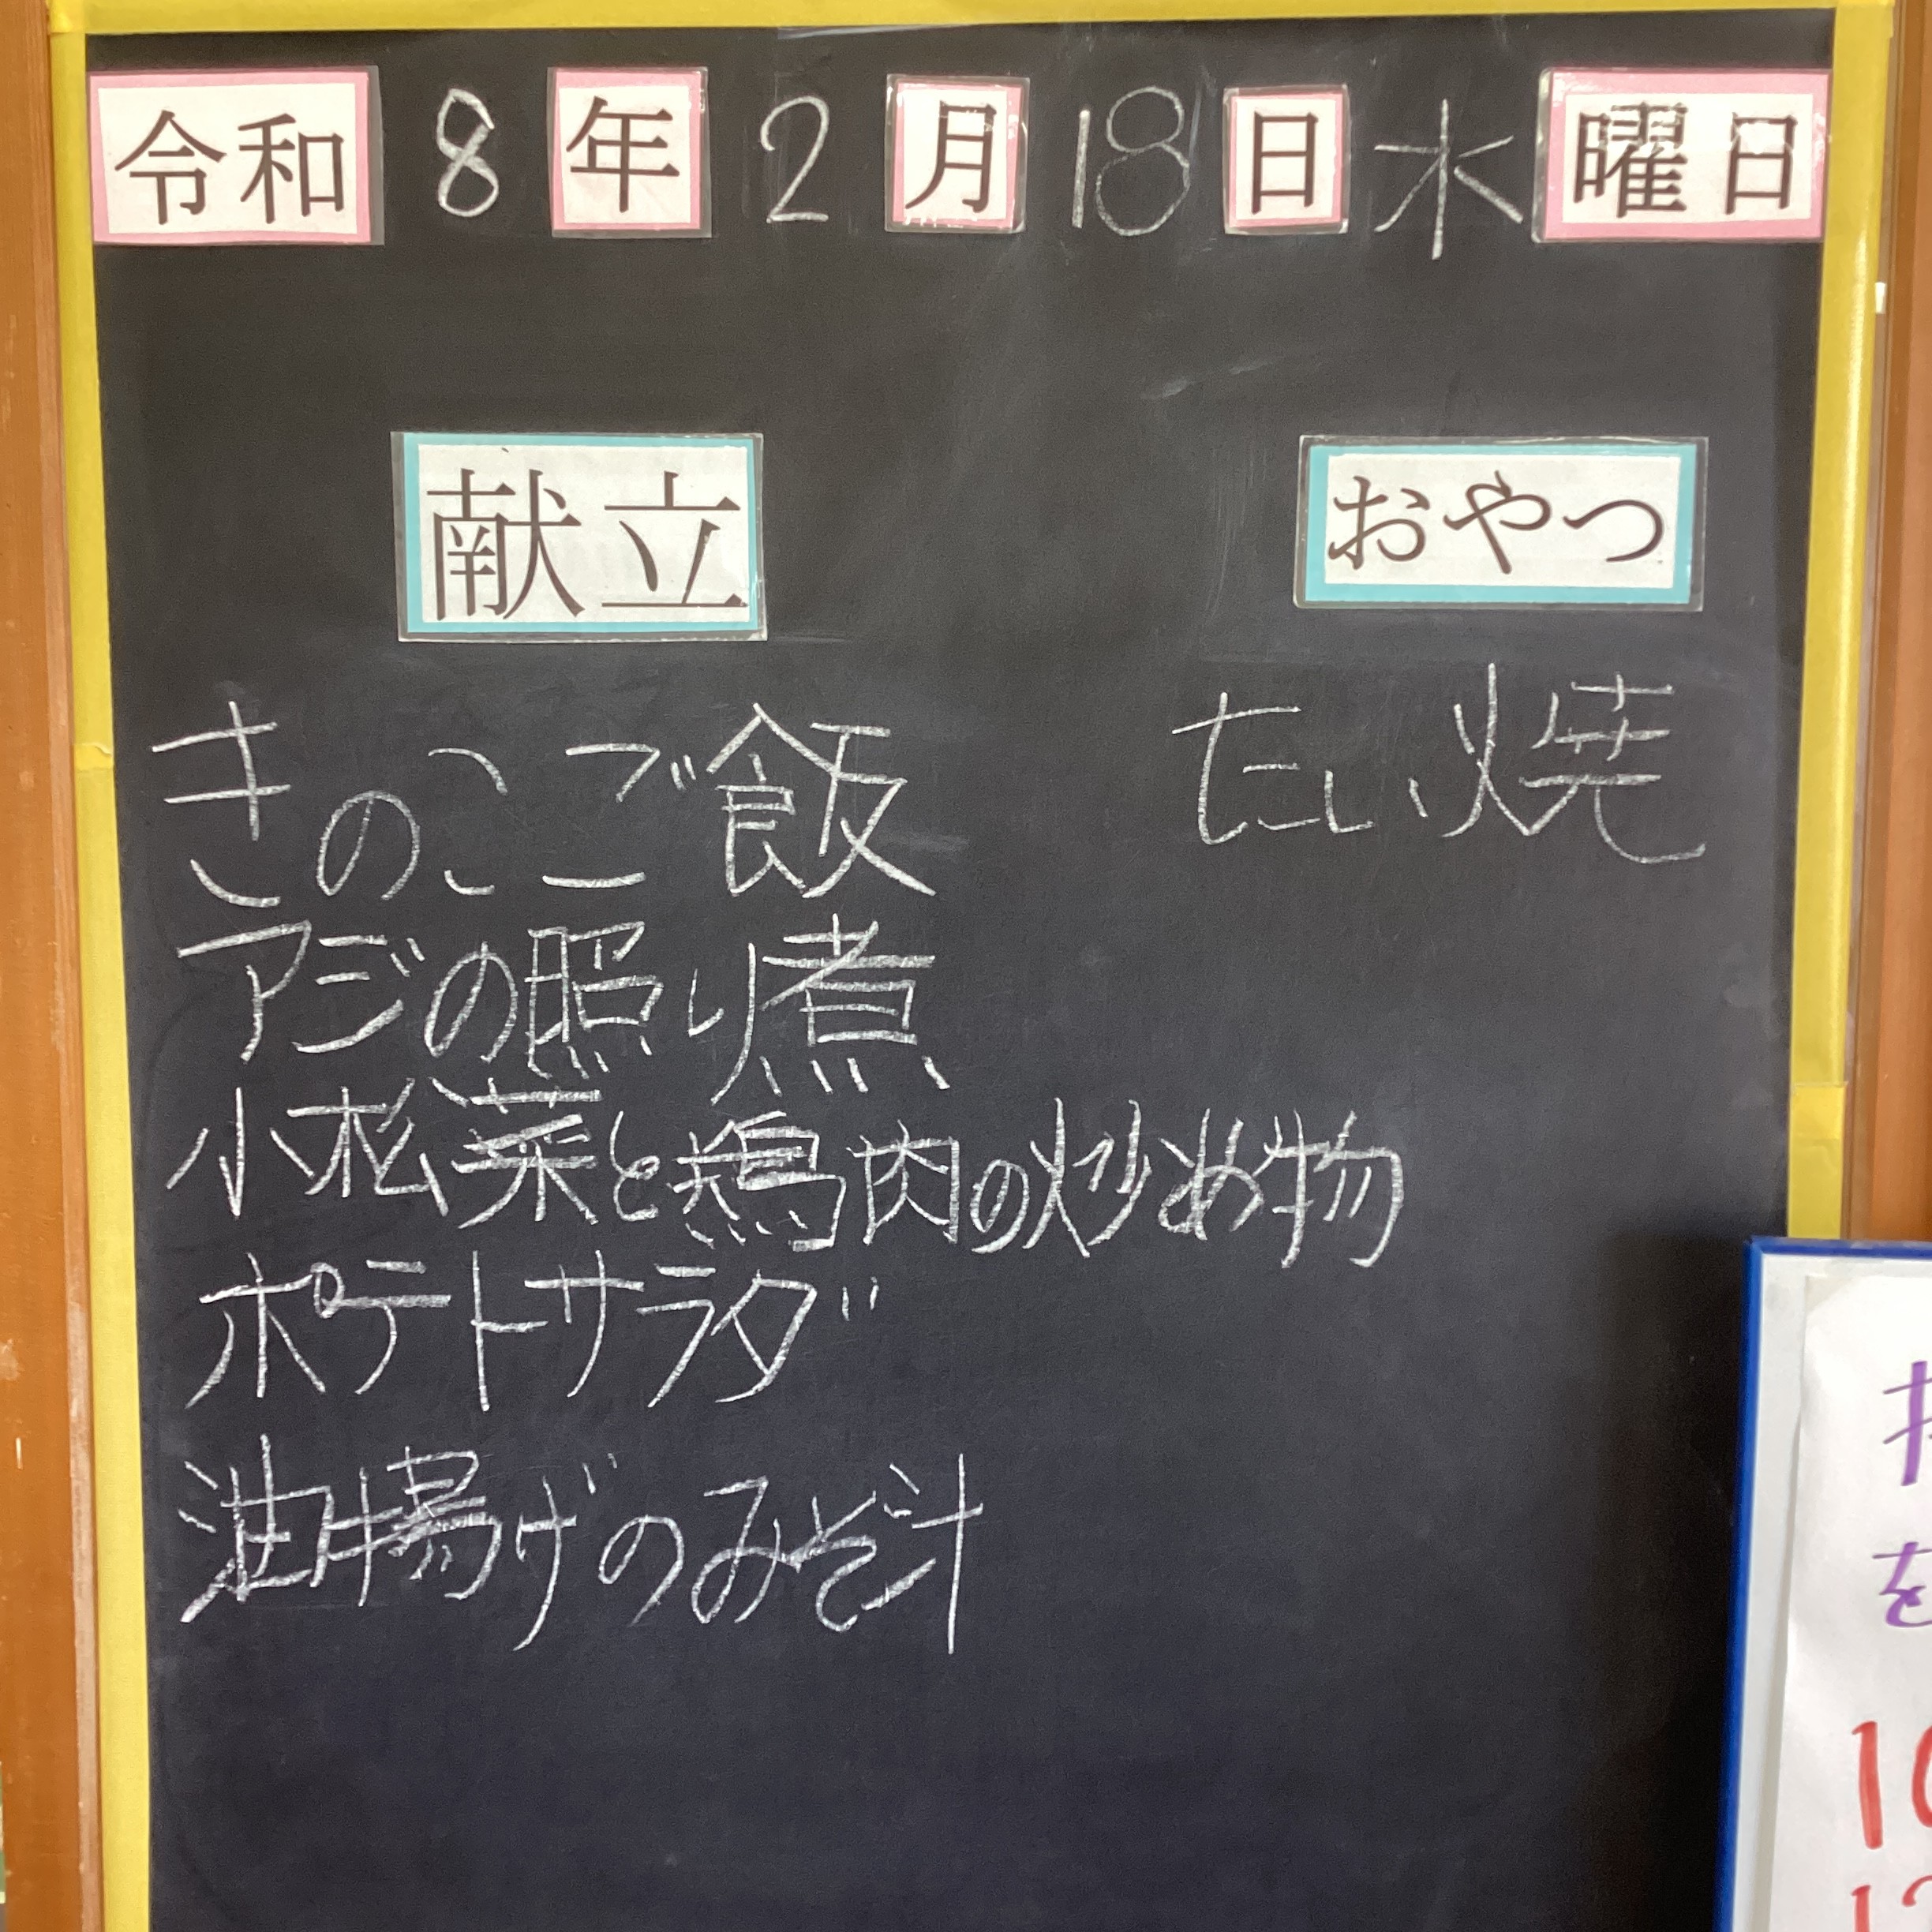 令和8年2月18日水曜日
献立
おやつ
きのこご飯
たい焼
アジの照り煮
小松菜と鶏肉の炒め物
ポテトサラダ
油揚げのみそ汁
を